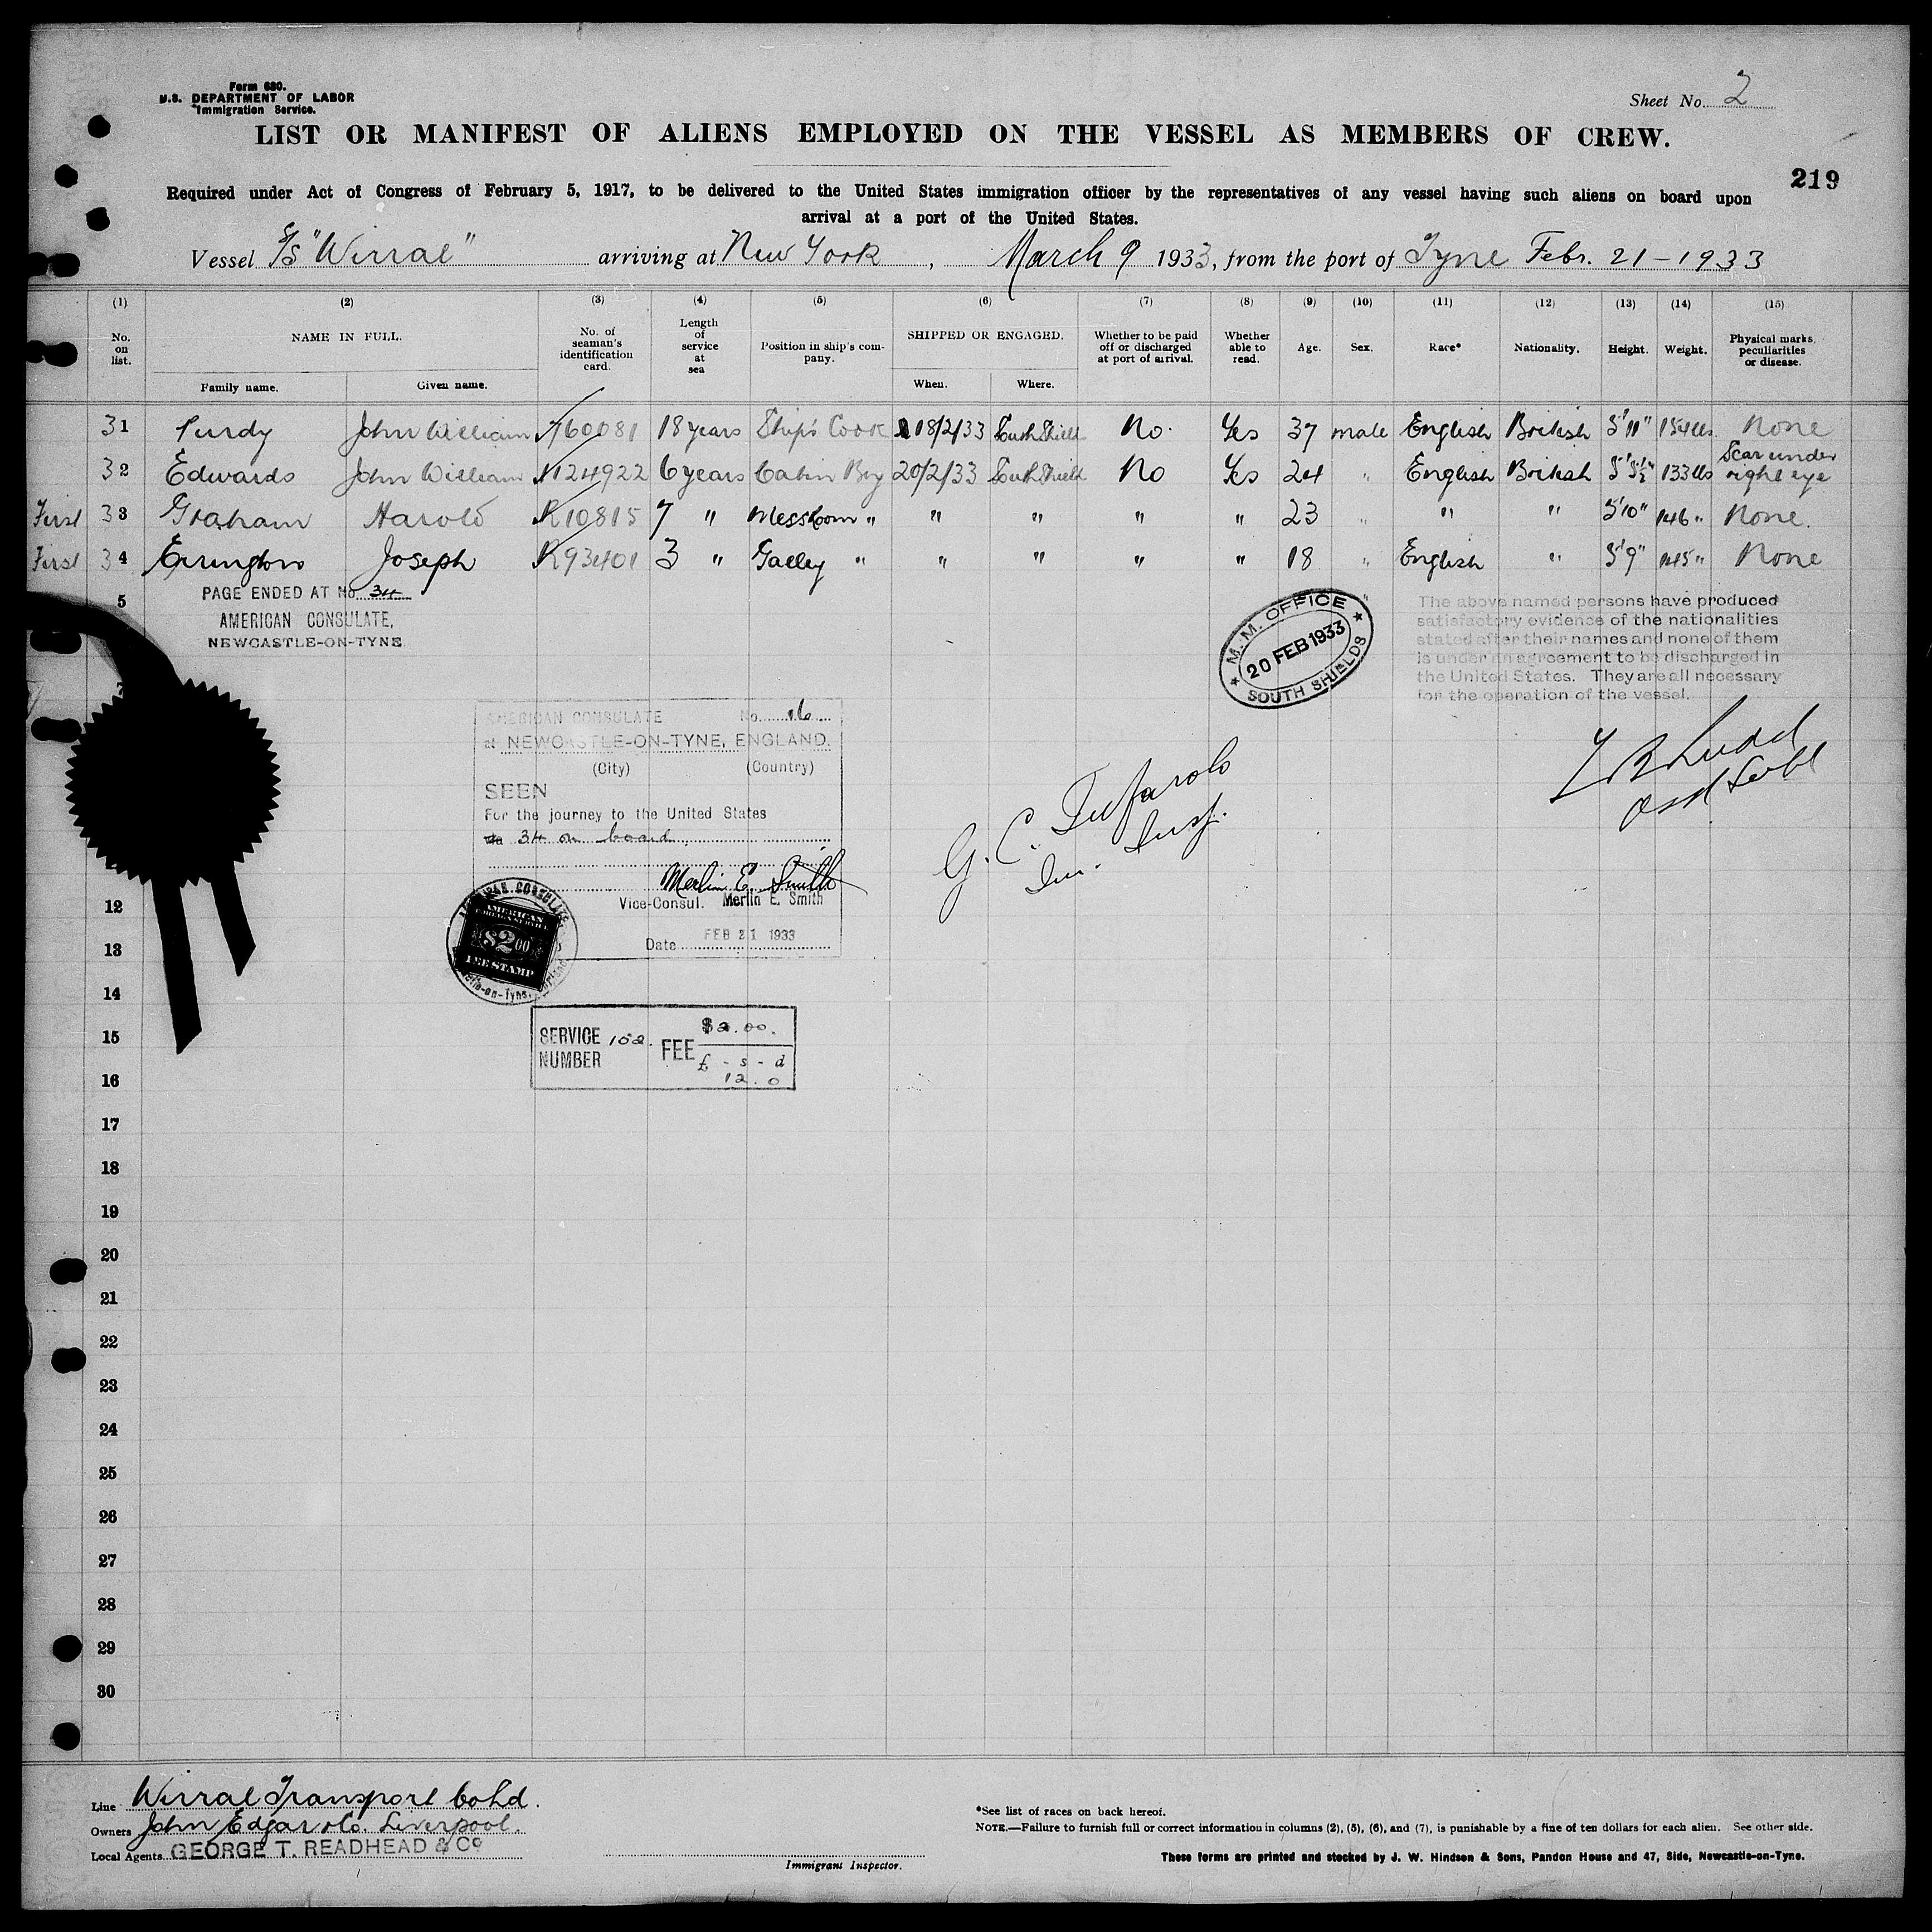 Form 680.
U.S. DEPARTMENT OF LABOR
Immigration Service.
Sheet No. 2
LIST OR MANIFEST OF ALIENS EMPLOYED ON THE VESSEL AS MEMBERS OF CREW.
219
Required under Act of Congress of February 5, 1917, to be delivered to the United States immigration officer by the representatives of any vessel having such aliens on board upon
arrival at a port of the United States.
Vessel S/S "Wirral" arriving at New York, March 9 1933, from the port of Tyne Febr. 21-1933
(1) (2) (3) (4) (5) (6) (7) (8) (9) (10) (11) (12) (13) (14) (15)
No. on list. NAME IN FULL. No. of seaman's identification card. Length of service at sea Position in ship's company. SHIPPED OR ENGAGED. Whether to be paid off or discharged at port of arrival. Whether able to read. Age. Sex. Race* Nationality. Height. Weight. Physical marks, peculiarities or disease.
Family name. Given name. When. Where.
31 Purdy John William 760081 18 years Ship's Cook 18/2/33 South Shields No. Yes 37 male English British 5'11" 154 lbs. None
32 Edwards John William 124922 6 years Cabin Boy 20/2/33 South Shields No Yes 24 " English British 5'5½" 133 lbs Scar under right eye
First 33 Graham Harold R10815 7 " Messroom " " " " " 23 " " " 5'10" 146 " None.
First 34 Errington Joseph R93401 3 " Galley " " " " " 18 " English " 5'9" 145 " None
PAGE ENDED AT No. 34
AMERICAN CONSULATE,
NEWCASTLE-ON-TYNE
5
M.M. OFFICE
20 FEB 1933
SOUTH SHIELDS
The above named persons have produced
satisfactory evidence of the nationalities
stated after their names and none of them
is under an agreement to be discharged in
the United States. They are all necessary
for the operation of the vessel.
AMERICAN CONSULATE No. 16
at NEWCASTLE-ON-TYNE, ENGLAND.
(City) (Country)
SEEN
For the journey to the United States
34 on board
Merlin E. Smith
Vice-Consul. Merlin E. Smith
Date FEB 21 1933
AMERICAN
FOREIGN SERVICE
$2.00
FEE STAMP
G. C.
Im. Insp.
SERVICE NUMBER 152. FEE $2.00.
£ - s - d
12. 0
12
13
14
15
16
17
18
19
20
21
22
23
24
25
26
27
28
29
30
Line Wirral Transport Co Ltd.
Owners John Edgar & Co. Liverpool.
Local Agents GEORGE T. READHEAD & Co
Immigrant Inspector.
*See list of races on back hereof.
NOTE.—Failure to furnish full or correct information in columns (2), (5), (6), and (7), is punishable by a fine of ten dollars for each alien. See other side.
These forms are printed and stocked by J. W. Hindson & Sons, Pandon House and 47, Side, Newcastle-on-Tyne.